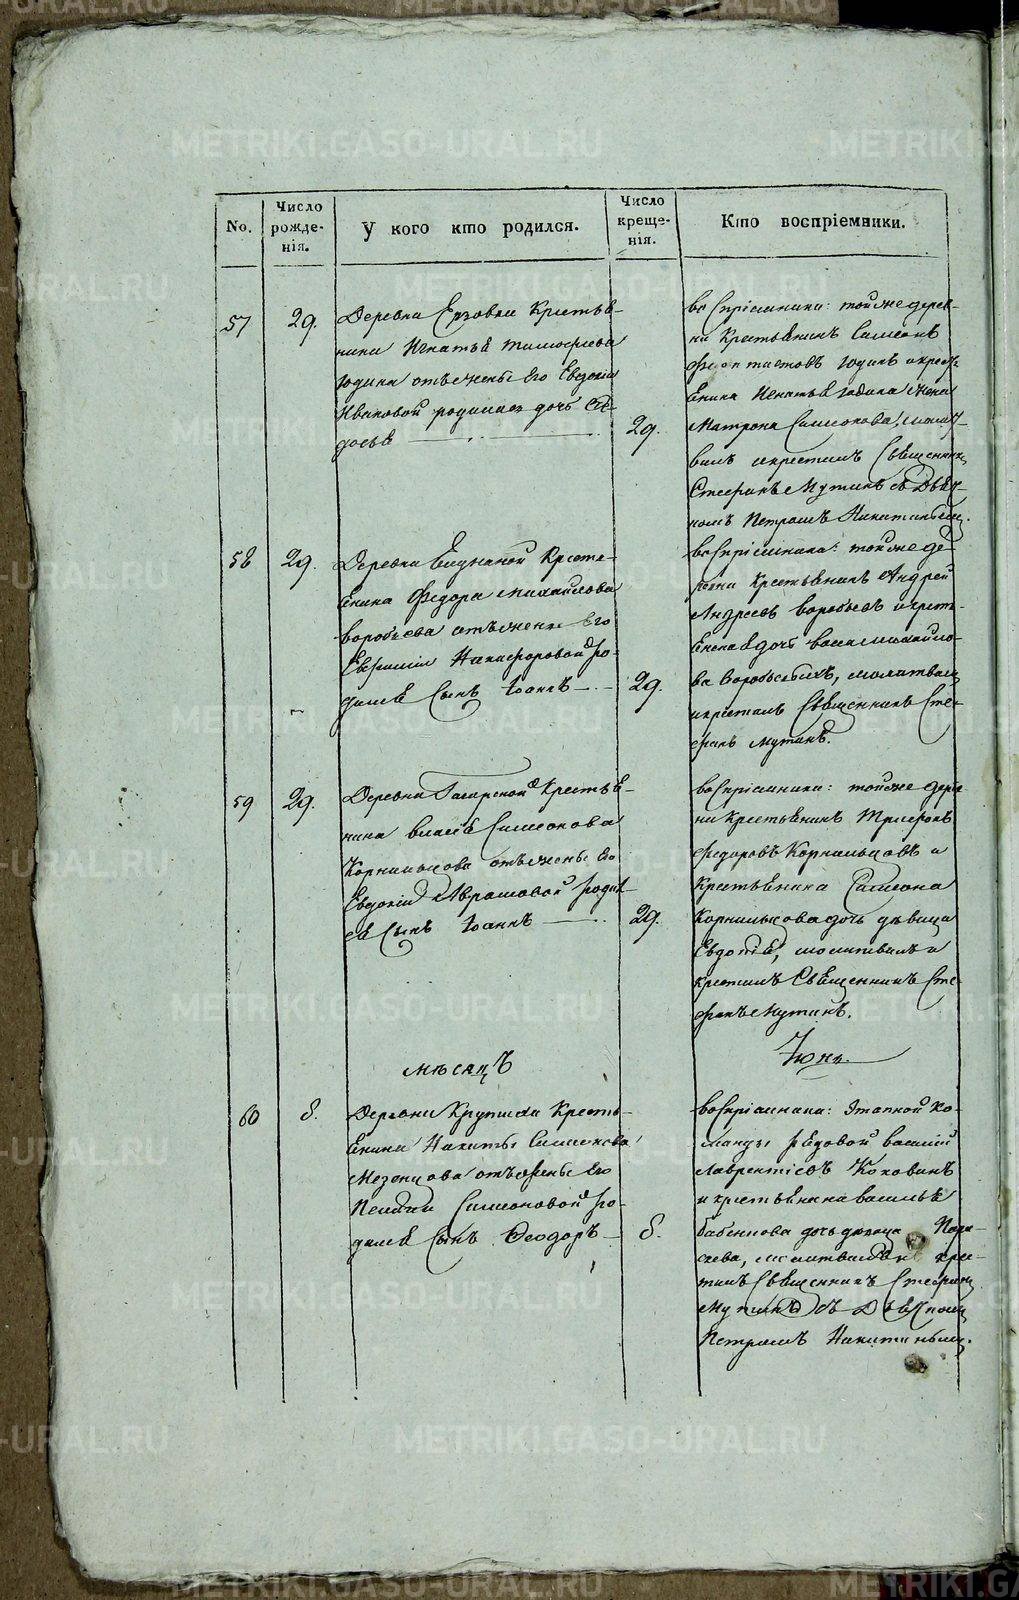 No.
Число рожде-
нія.
У кого кто родился.
Число креще-
нія.
Кто воспріемники.
57
29.
Деревни Крестья-
нина Игнатья Тимофеева
Юдина отъ жены его Евдокіи
Ивановой родилась дочь Ѳе-
досья
29.
воспріемники: тойже дерев-
ни Крестьянинъ Симеонъ
Юдинъ и крест-
янина Игнатья Юдина жена
Матрона Симеонова, молит-
вилъ и крестилъ Священникъ
Стефанъ Мутинъ съ Дьяч-
комъ Петромъ Никитинымъ.
58
29.
Деревни Крестья-
янина Федора Михайлова
воробьева отъ жены его
Евфиміи Никифоровой ро-
дился Сынъ Іоаннъ
29.
воспріемники: тойже де-
ревни Крестьянинъ Андрей
Андреевъ воробьевъ и крест-
дочь Михайло-
ва воробьевыхъ, молитвилъ
и крестилъ Священникъ Сте-
фанъ Мутинъ.
59
29.
Деревни Гагарской Крестья-
нина Власія Симеонова
Корнильцова отъ жены его
Евдокіи Абрамовой родил-
ся Сынъ Іоаннъ
29.
воспріемники: тойже дерев-
ни Крестьянинъ Трифонъ
Федоровъ Корнильцовъ и
Крестьянина Симеона
Корнильцова дочь дѣвица
Евдокія, молитвилъ и
крестилъ Священникъ Сте-
фанъ Мутинъ.
мѣсяцъ
Іюнь.
60
8.
Деревни Крутихи Кресть-
янина Никиты Симеонова
Мезенцова отъ жены его
Пелагіи Симеоновой ро-
дился Сынъ Ѳеодоръ
8.
воспріемники: Этапной ко-
манды рядовой василій
Лаврентіевъ Коковинъ
и крестьянина василья
бабенкова дочь дѣвица Пара-
скева, молитвилъ и крес-
тилъ Священникъ Стефанъ
Мутинъ съ Дьячкомъ
Петромъ Никитинымъ.
METRIKI.GASO-URAL.RU